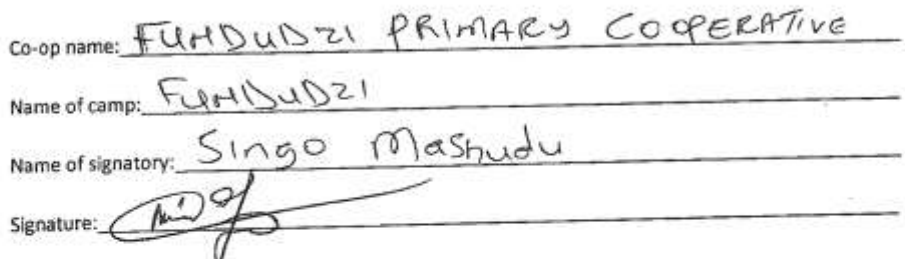 Co-op name: FUHDUDZI PRIMARY COOPERATIVE
Name of camp: FUHDUDZI
Name of signatory: Singo Mashudu
Signature: